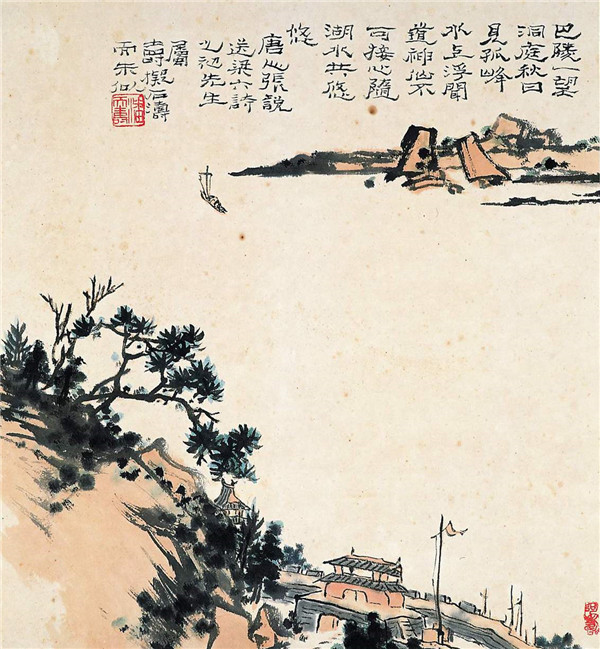 巴陵一望
洞庭秋日
見孤峰
水点浮聞
道神仙不
可接心隨
湖水共悠
悠
唐人張説
送梁六詩
之初先生
屬
壽橅石濤
而未似
潘天壽